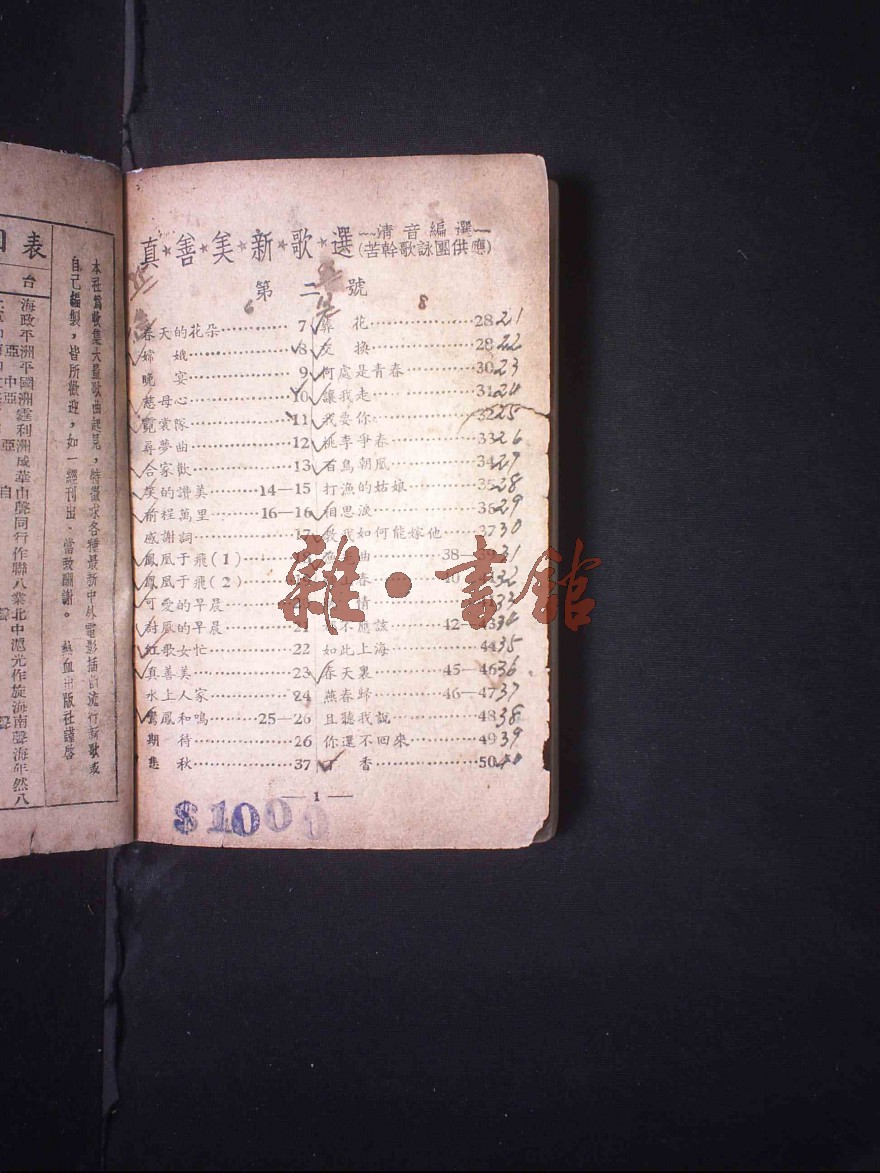 真★善★美★新★歌★選
清音編選
(苦幹歌詠團供應)
第二號
春天的花朵…………7
嫦 娥…………8
晚 宴…………9
慈母心…………10
霓裳隊…………11
尋夢曲…………12
合家歡…………13
笑的讚美…………14—15
前程萬里…………16—16
感謝詞…………17
鳳凰于飛(1)…………
鳳凰于飛(2)…………
可愛的早晨…………
的早晨…………21
紅歌女忙…………22
真善美…………23
水上人家…………24
鸞鳳和鳴…………25—26
期 待…………26
悲 秋…………37
葬 花…………28 21
交 換…………28 22
何處是青春…………30 23
讓我走…………31 24
我要你…………32 25
桃李爭春…………33 26
百鳥朝鳳…………34 27
打漁的姑娘…………35 28
相思淚…………36 29
教我如何能嫁他…………37 30
曲…………38— 31
春…………40 32
情…………33
不應該…………42—43 34
如此上海…………44 35
春天裏…………45—46 36
燕春歸…………46—47 37
且聽我說…………48 38
你還不回來…………49 39
香…………50
— 1 —
$1000
本社為收集大量歌曲起見，特徵求各種最新中外電影插曲流行新歌或
自己編製，皆所歡迎，如一經刊出，當致酬謝。 熱血出版社謹啓
表
台
雜·書館